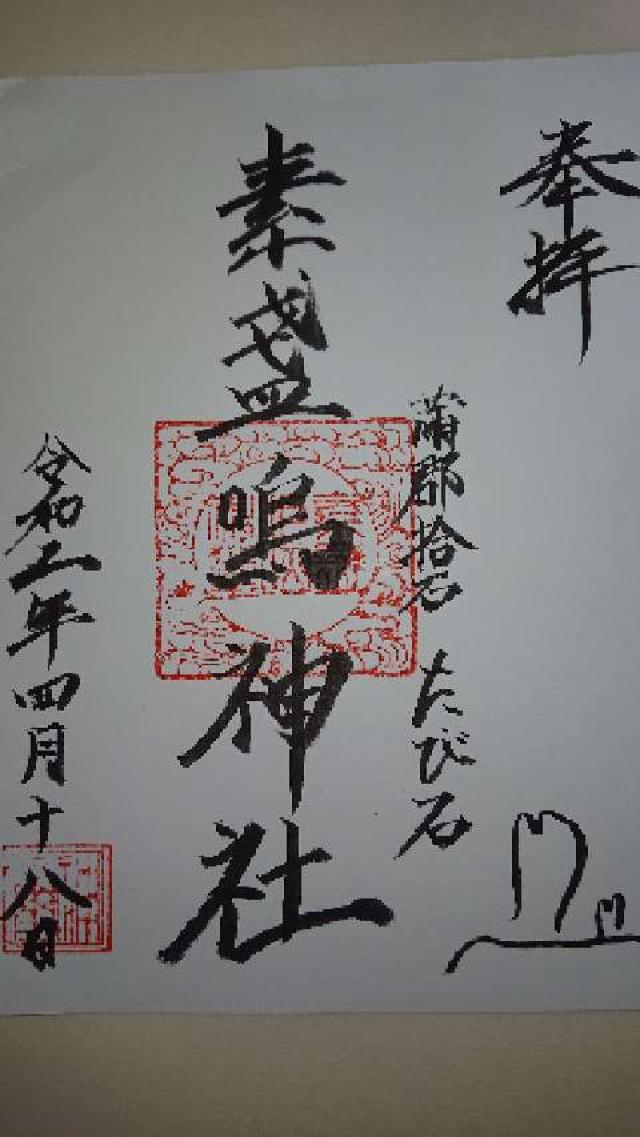 奉拝
蒲郡拾石 たび石
素盞嗚神社
令和二年四月十八日